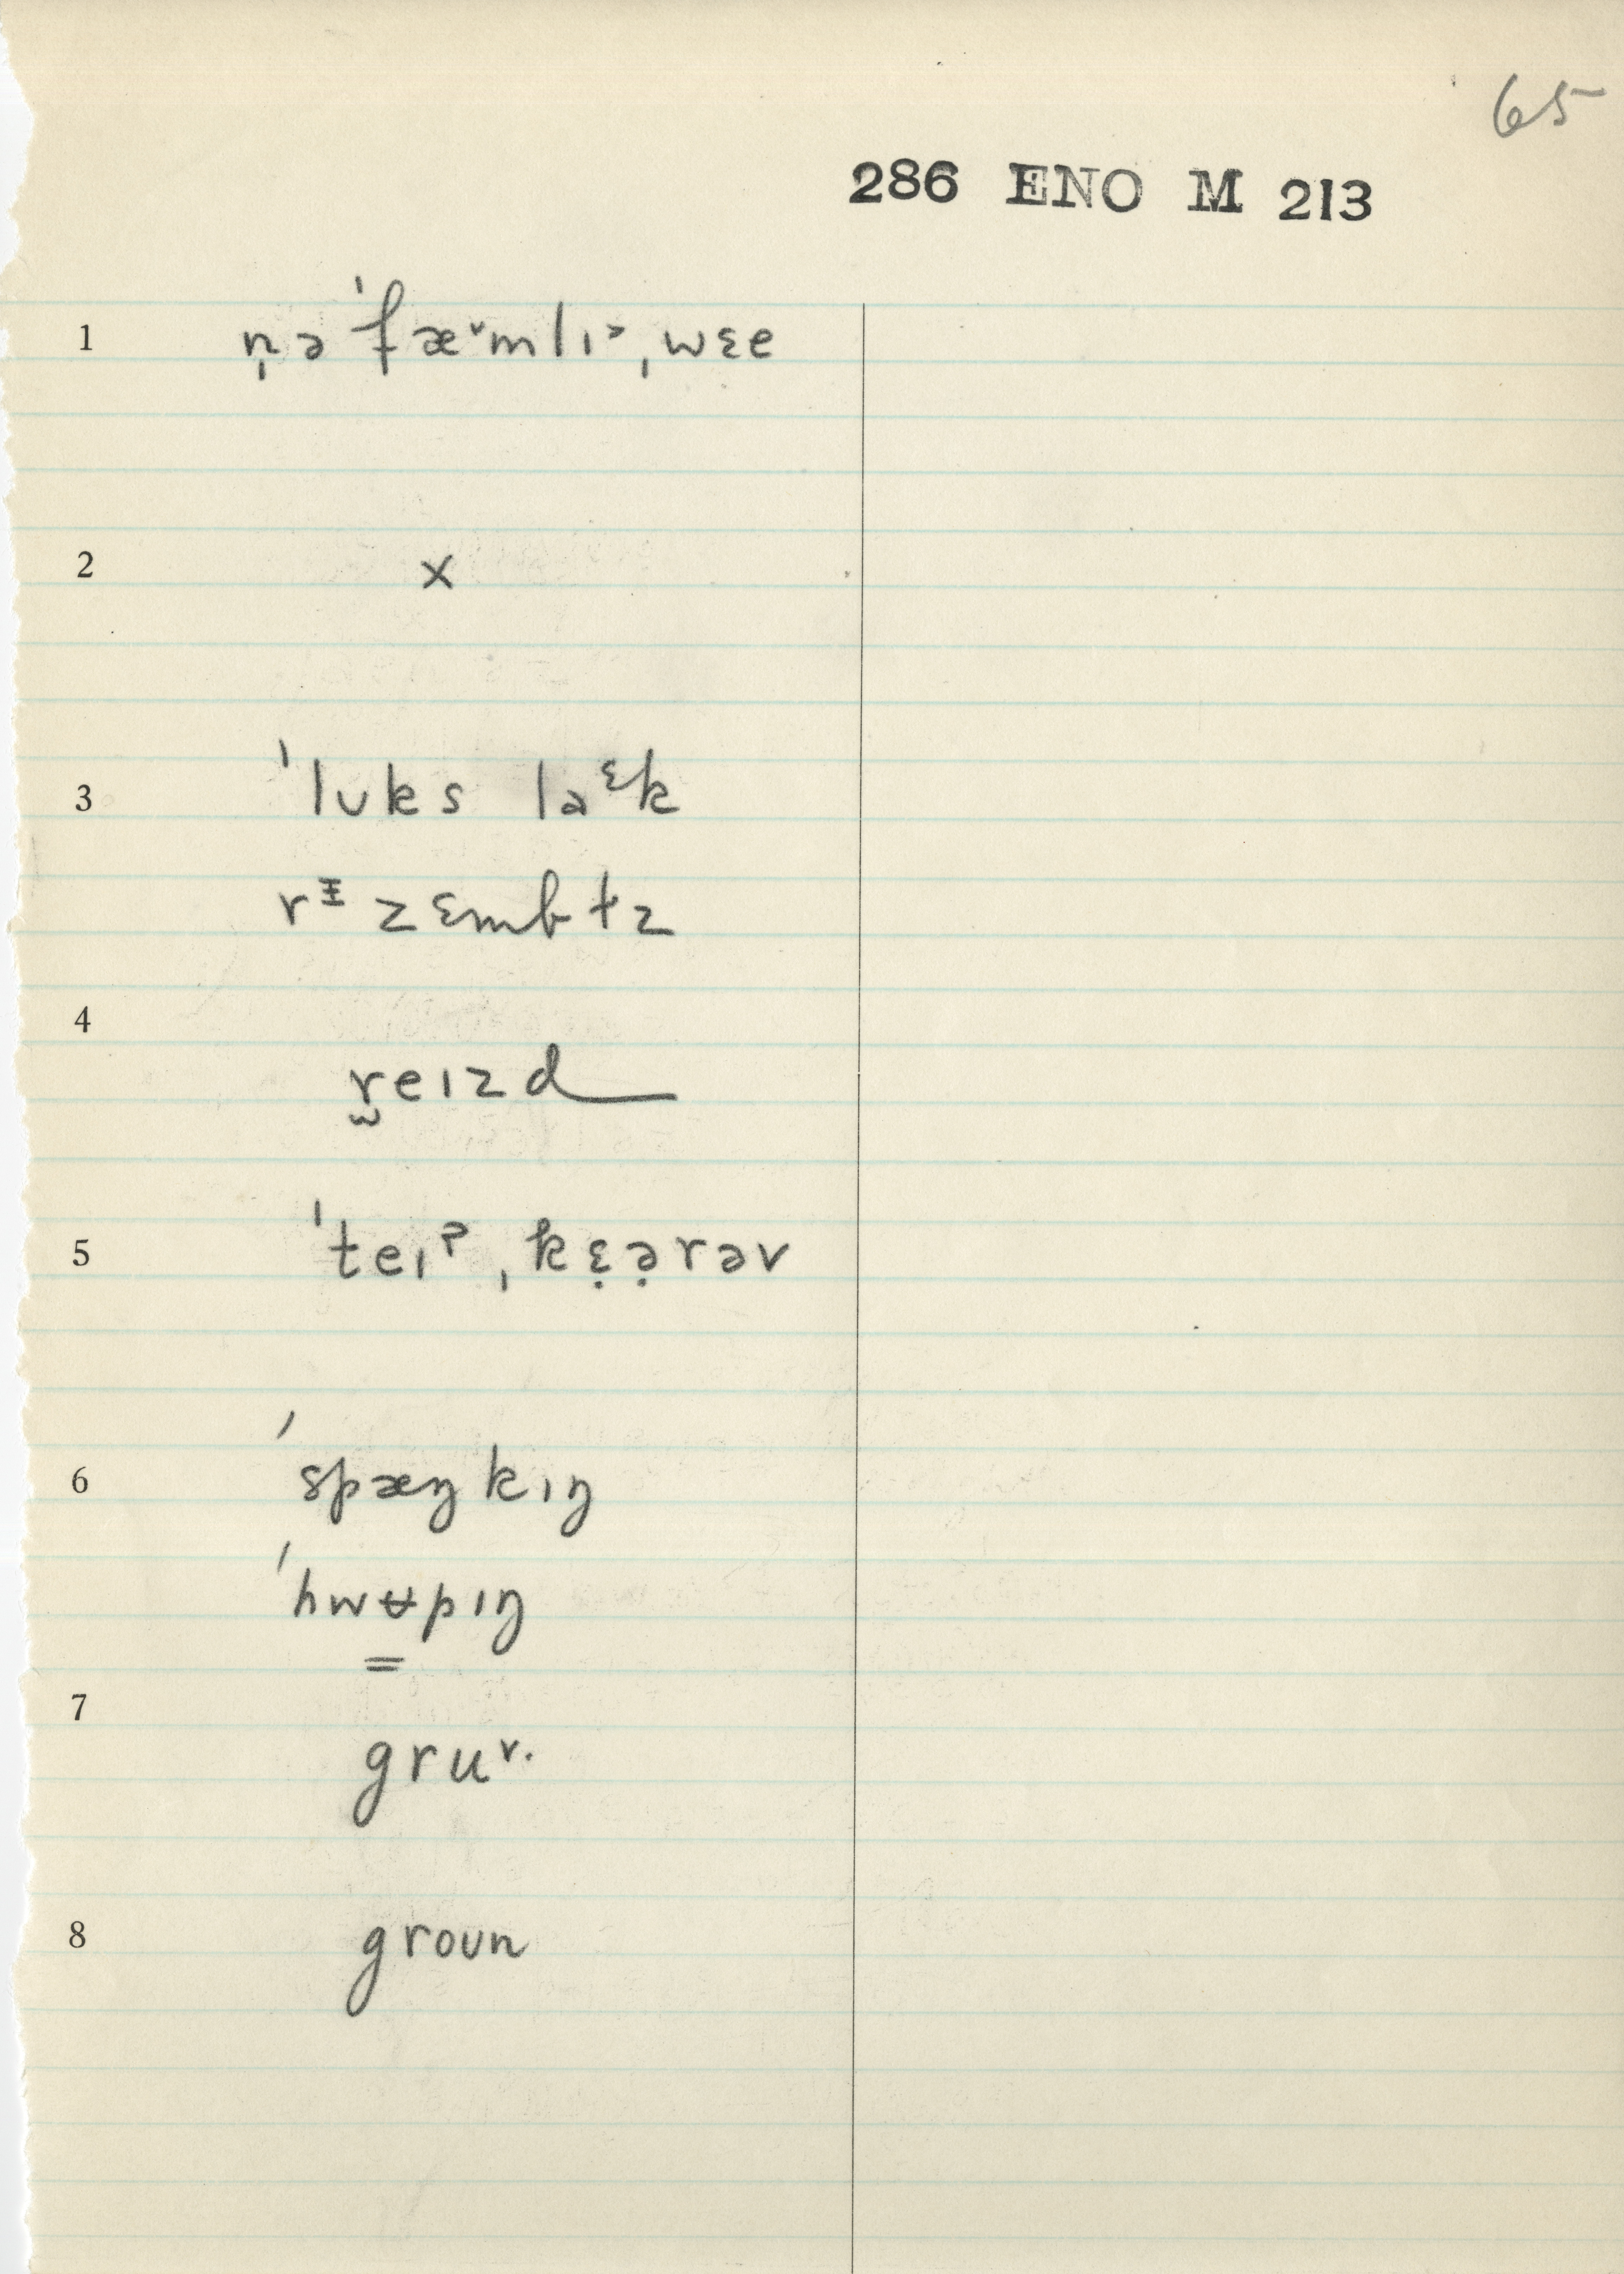 65
286 ENO M 213
1 n̩ ə ˈfæ˅mlɪ˃ ˌwɛe
2 x
3 ˈlʊks la ᵋk
rᵻ zɛmbɫz
4
r̫eɪzd
5 ˈteɪˀ ˌkɛ̣ə̣rəv
6 ˈspæŋkɪŋ
ˈhwʉpɪŋ
7
gru˅·
8 groʊn